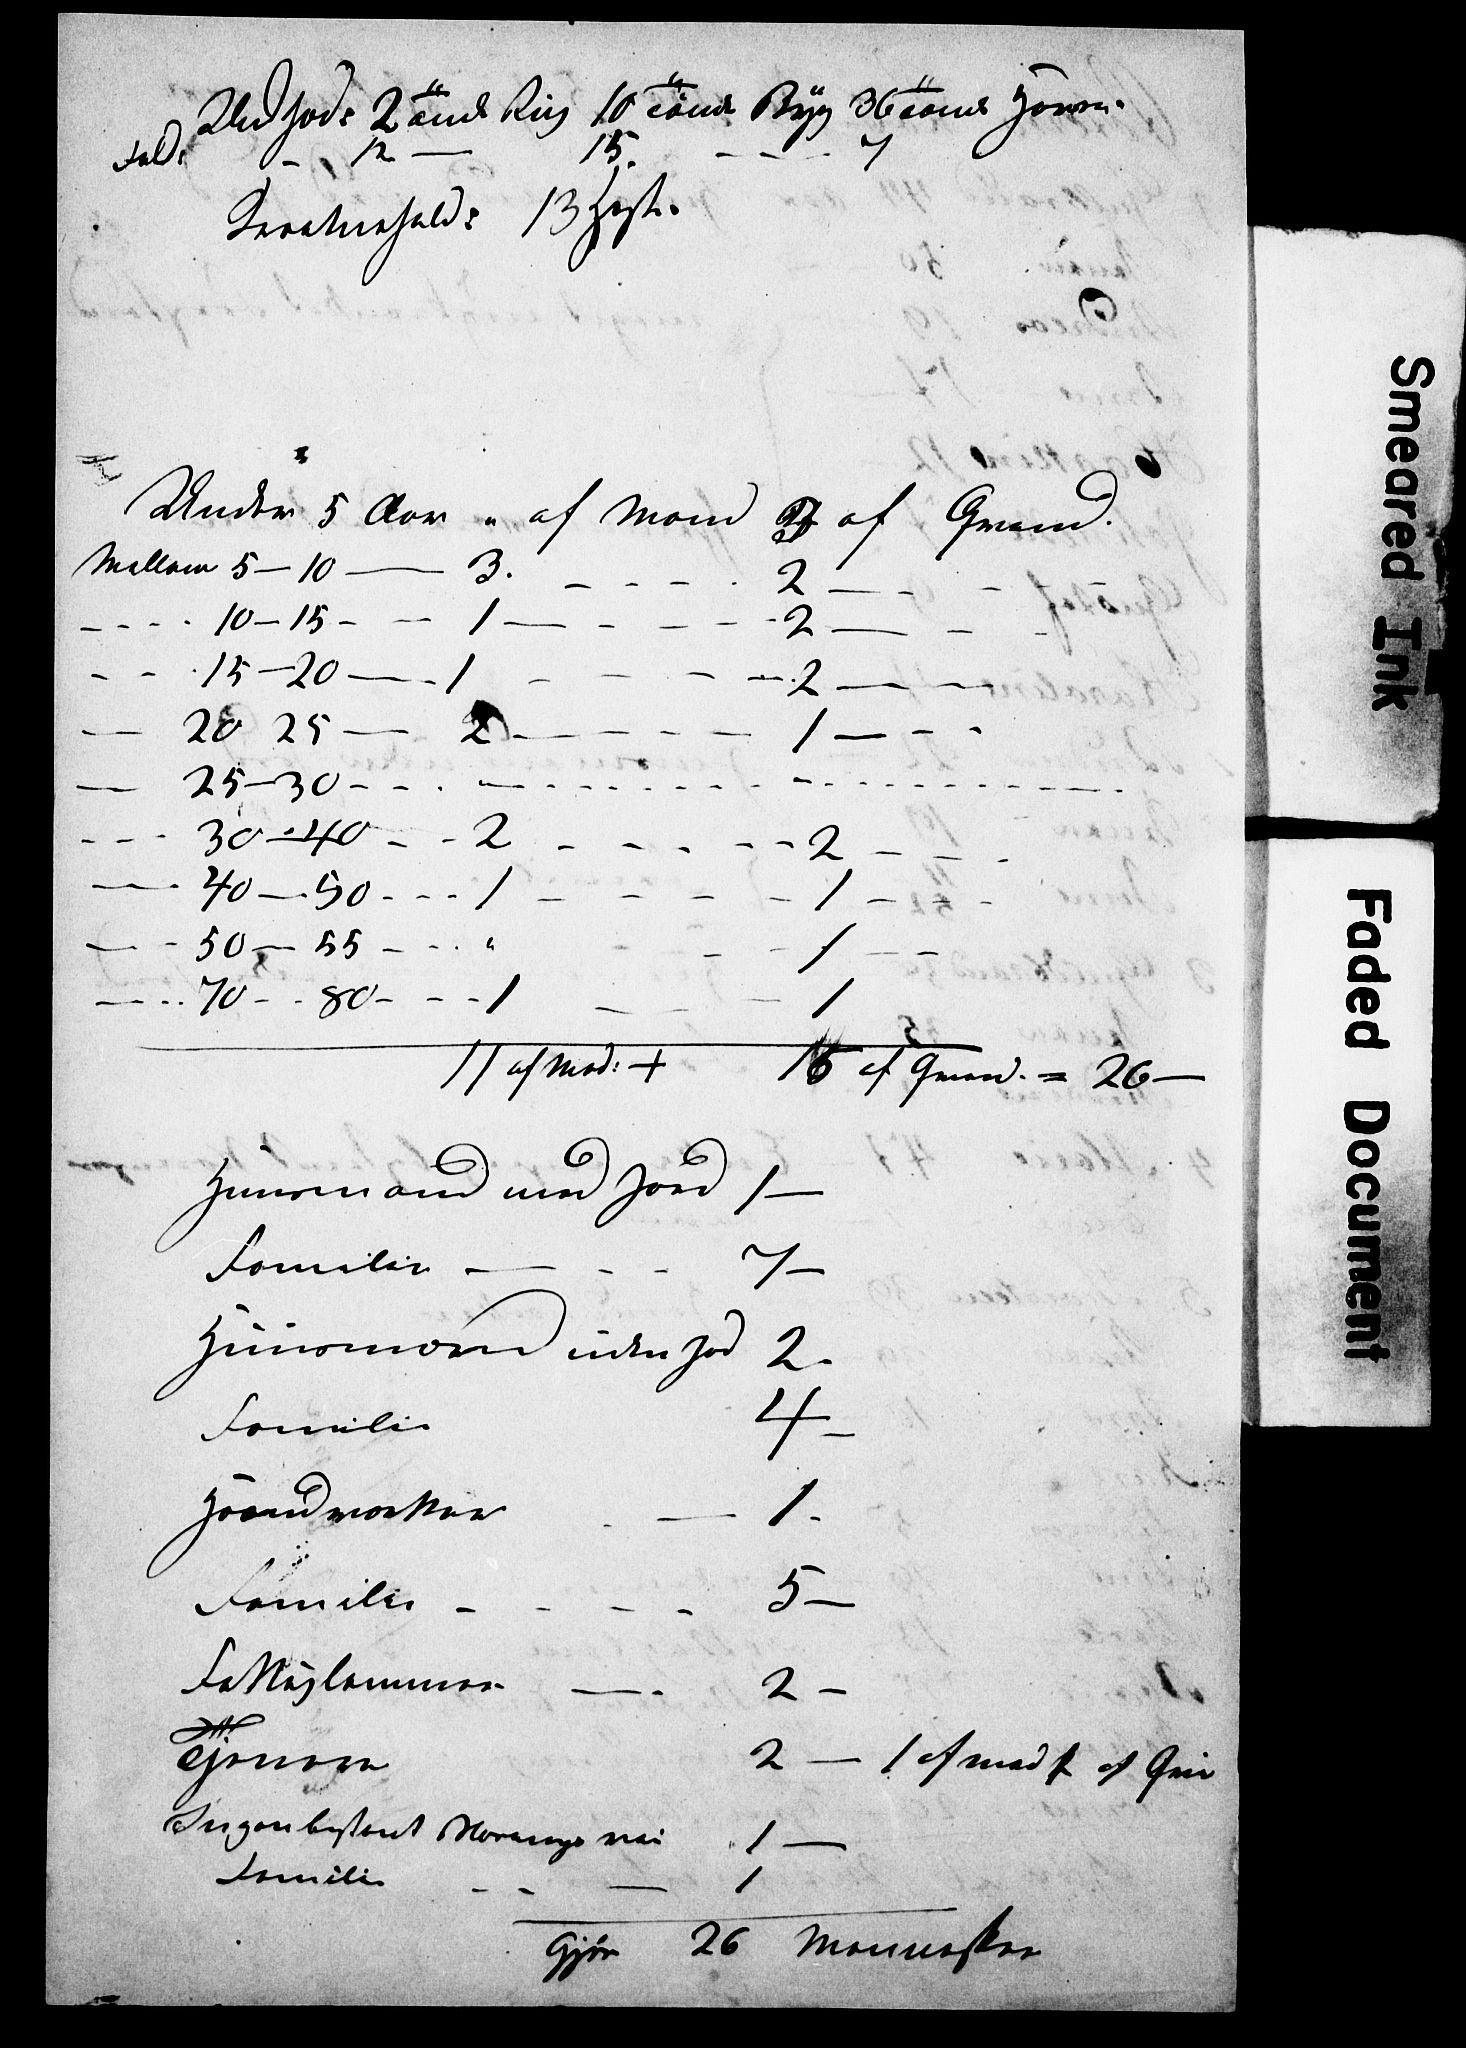 Udsæd: 2 Tönde Rug 10 Tönde Byg 36 Tönde Havre.
Fold: - 12 — 15. - - - 7
Kreaturhold: 13 Hest.
Under 5 Aar " af Mand af Qvind.
Mellem 5 — 10 — 3. - - - - 2 — - -
- - - - 10 — 15 - - 1 — - - - - 2 — - -
- - 15 — 20 — 1 - - - - 2 —
— 20 25 — 2 - — - - — 1 — - -
— 25 — 30 - - - " - - - - - " - - - -
- - - 30 - 40 - - 2 - - - - - 2 - - -
— 40 — 50 - - - 1 - - - - - 1 - - -
— - 50 — 55 - - - " - - - 1 - -
— - - 70 - - 80 - - - 1 - - - 1
11 af Mad: + 15 af Qvind. = 26 —
Huusmænd med Jord 1 —
Familie — - - 7 —
Huusmænd uden Jord 2.
Familie 4 —
Haandværker - — 1.
Familie - - - - 5 —
Fattiglemmer — 2 —
Tjenere 2 — 1 af mad 1 af Qvin
Ingen bestemt Nærings vei 1 —
Familie - - — 1
Gjør 26 Mennesker
Smeared Ink
Faded Document